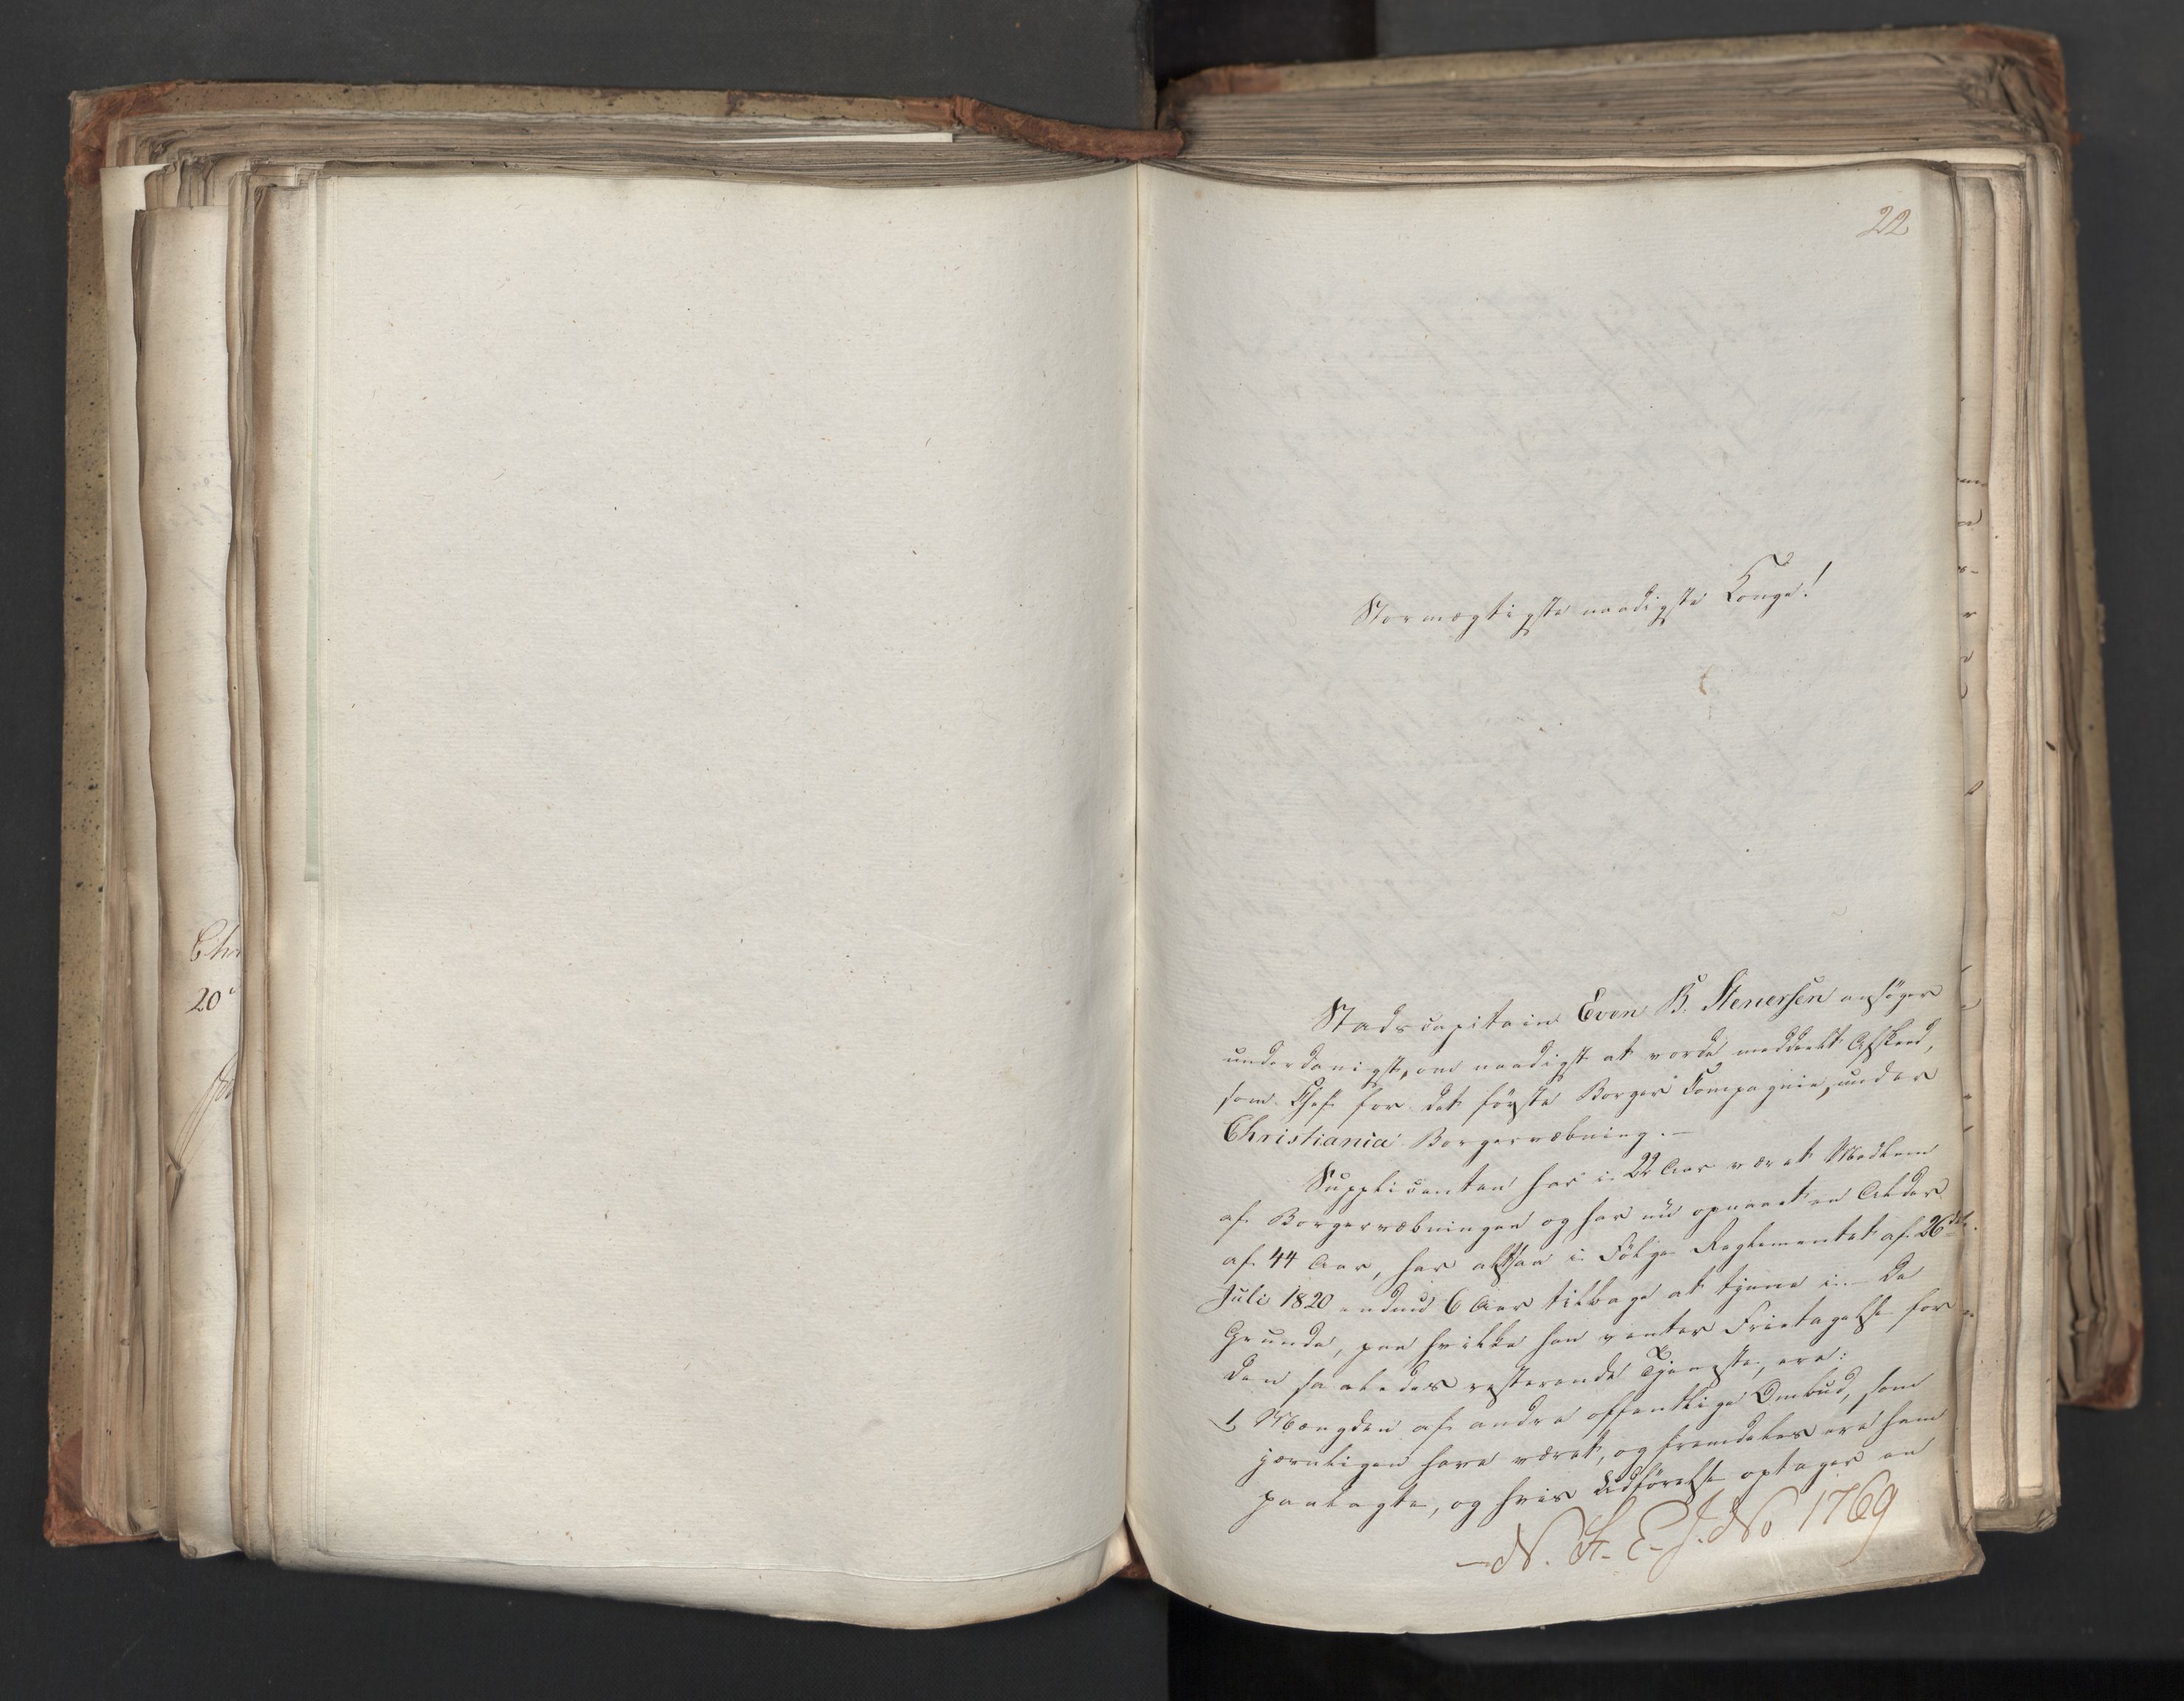 22
Stormægtigste naadigste Konge!
Stadscapitain Even B. Stenersen ansöger
underdanigst, om naadigst at vorde meddeelt Afskeed,
som Chef for det förste Borger Compagnie, under
Christiania Borgervæbning. —
Supplicanten har i 22 Aar været Medlem
af Borgervæbningen og har nu opnaaet en Alder
af 44 Aar, har altsaa i Fölge Reglementet af 26de
Juli 1820 endnu 6 Aar tilbage at tjene i. — De
Grunde, paa hvilke han venter Fritagelse for
den saaledes resterende Tjeneste, ere:
1, Mængden af andre offentlige Ombud, som
jævnligen have været, og fremdeles ere ham
paalagte, og hvis Udförelse optager en
N. St. E. J. No 1769
Chr
20